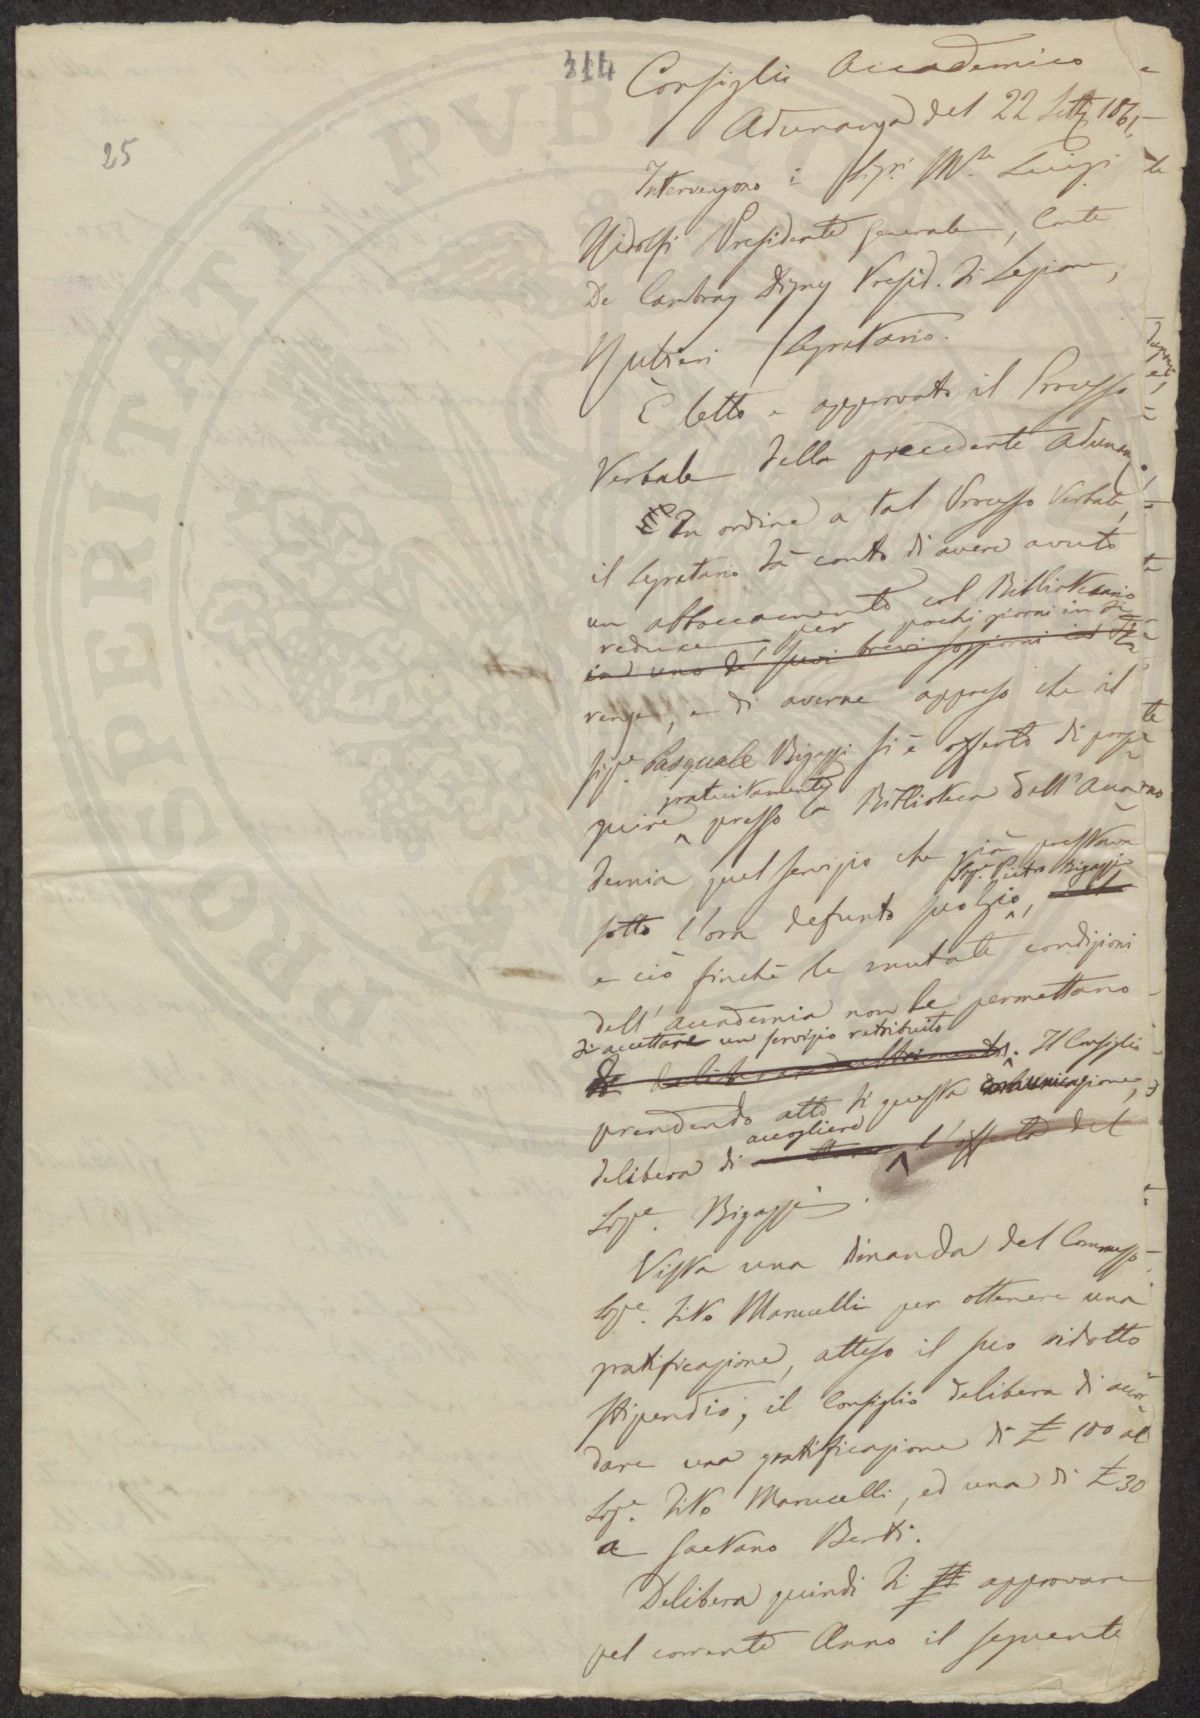 314
25
Consiglio Accademico
Adunanza del 22 Sett. 1861.
Intervengono i Sigri. Mse. Luigi
Ridolfi Presidente Generale, Conte
De Cambray Digny Presid. di Sezione,
Rubieri Segretario.
È letto e approvato il Processo
Verbale della precedente Adunanza.
In ordine a tal Processo Verbale,
il Segretario dà conto di avere avuto
un abboccamento col Bibliotecario
reduce per pochi giorni in Fi
in uno de' suoi brevi soggiorni in Fi
renze, e di averne appreso che il
Sige. Pasquale Bigazzi si è offerto di prose
gratuitamente
guire presso la Biblioteca dell'Acca
demia quel servizio che già prestava
Sige. Pietro Bigazzi
sotto l'ora defunto suo Zio,
e ciò finchè le mutate condizioni
dell'Accademia non le permettano
di accettare un servizio retribuito
di deliberare altrimenti. Il Consiglio
prendendo atto di questa comunicazione,
accogliere
delibera di l'offerta del
Sige. Bigazzi.
Vista una dimanda del Commesso
Sige. Tito Marucelli per ottenere una
gratificazione, atteso il suo ridotto
stipendio, il Consiglio delibera di accor
dare una gratificazione di £ 100 al
Sige. Tito Marucelli, ed una di £ 30
a Gaetano Berti.
Delibera quindi di approvare
pel corrente Anno il seguente
PROSPERITATI PVBLICAE